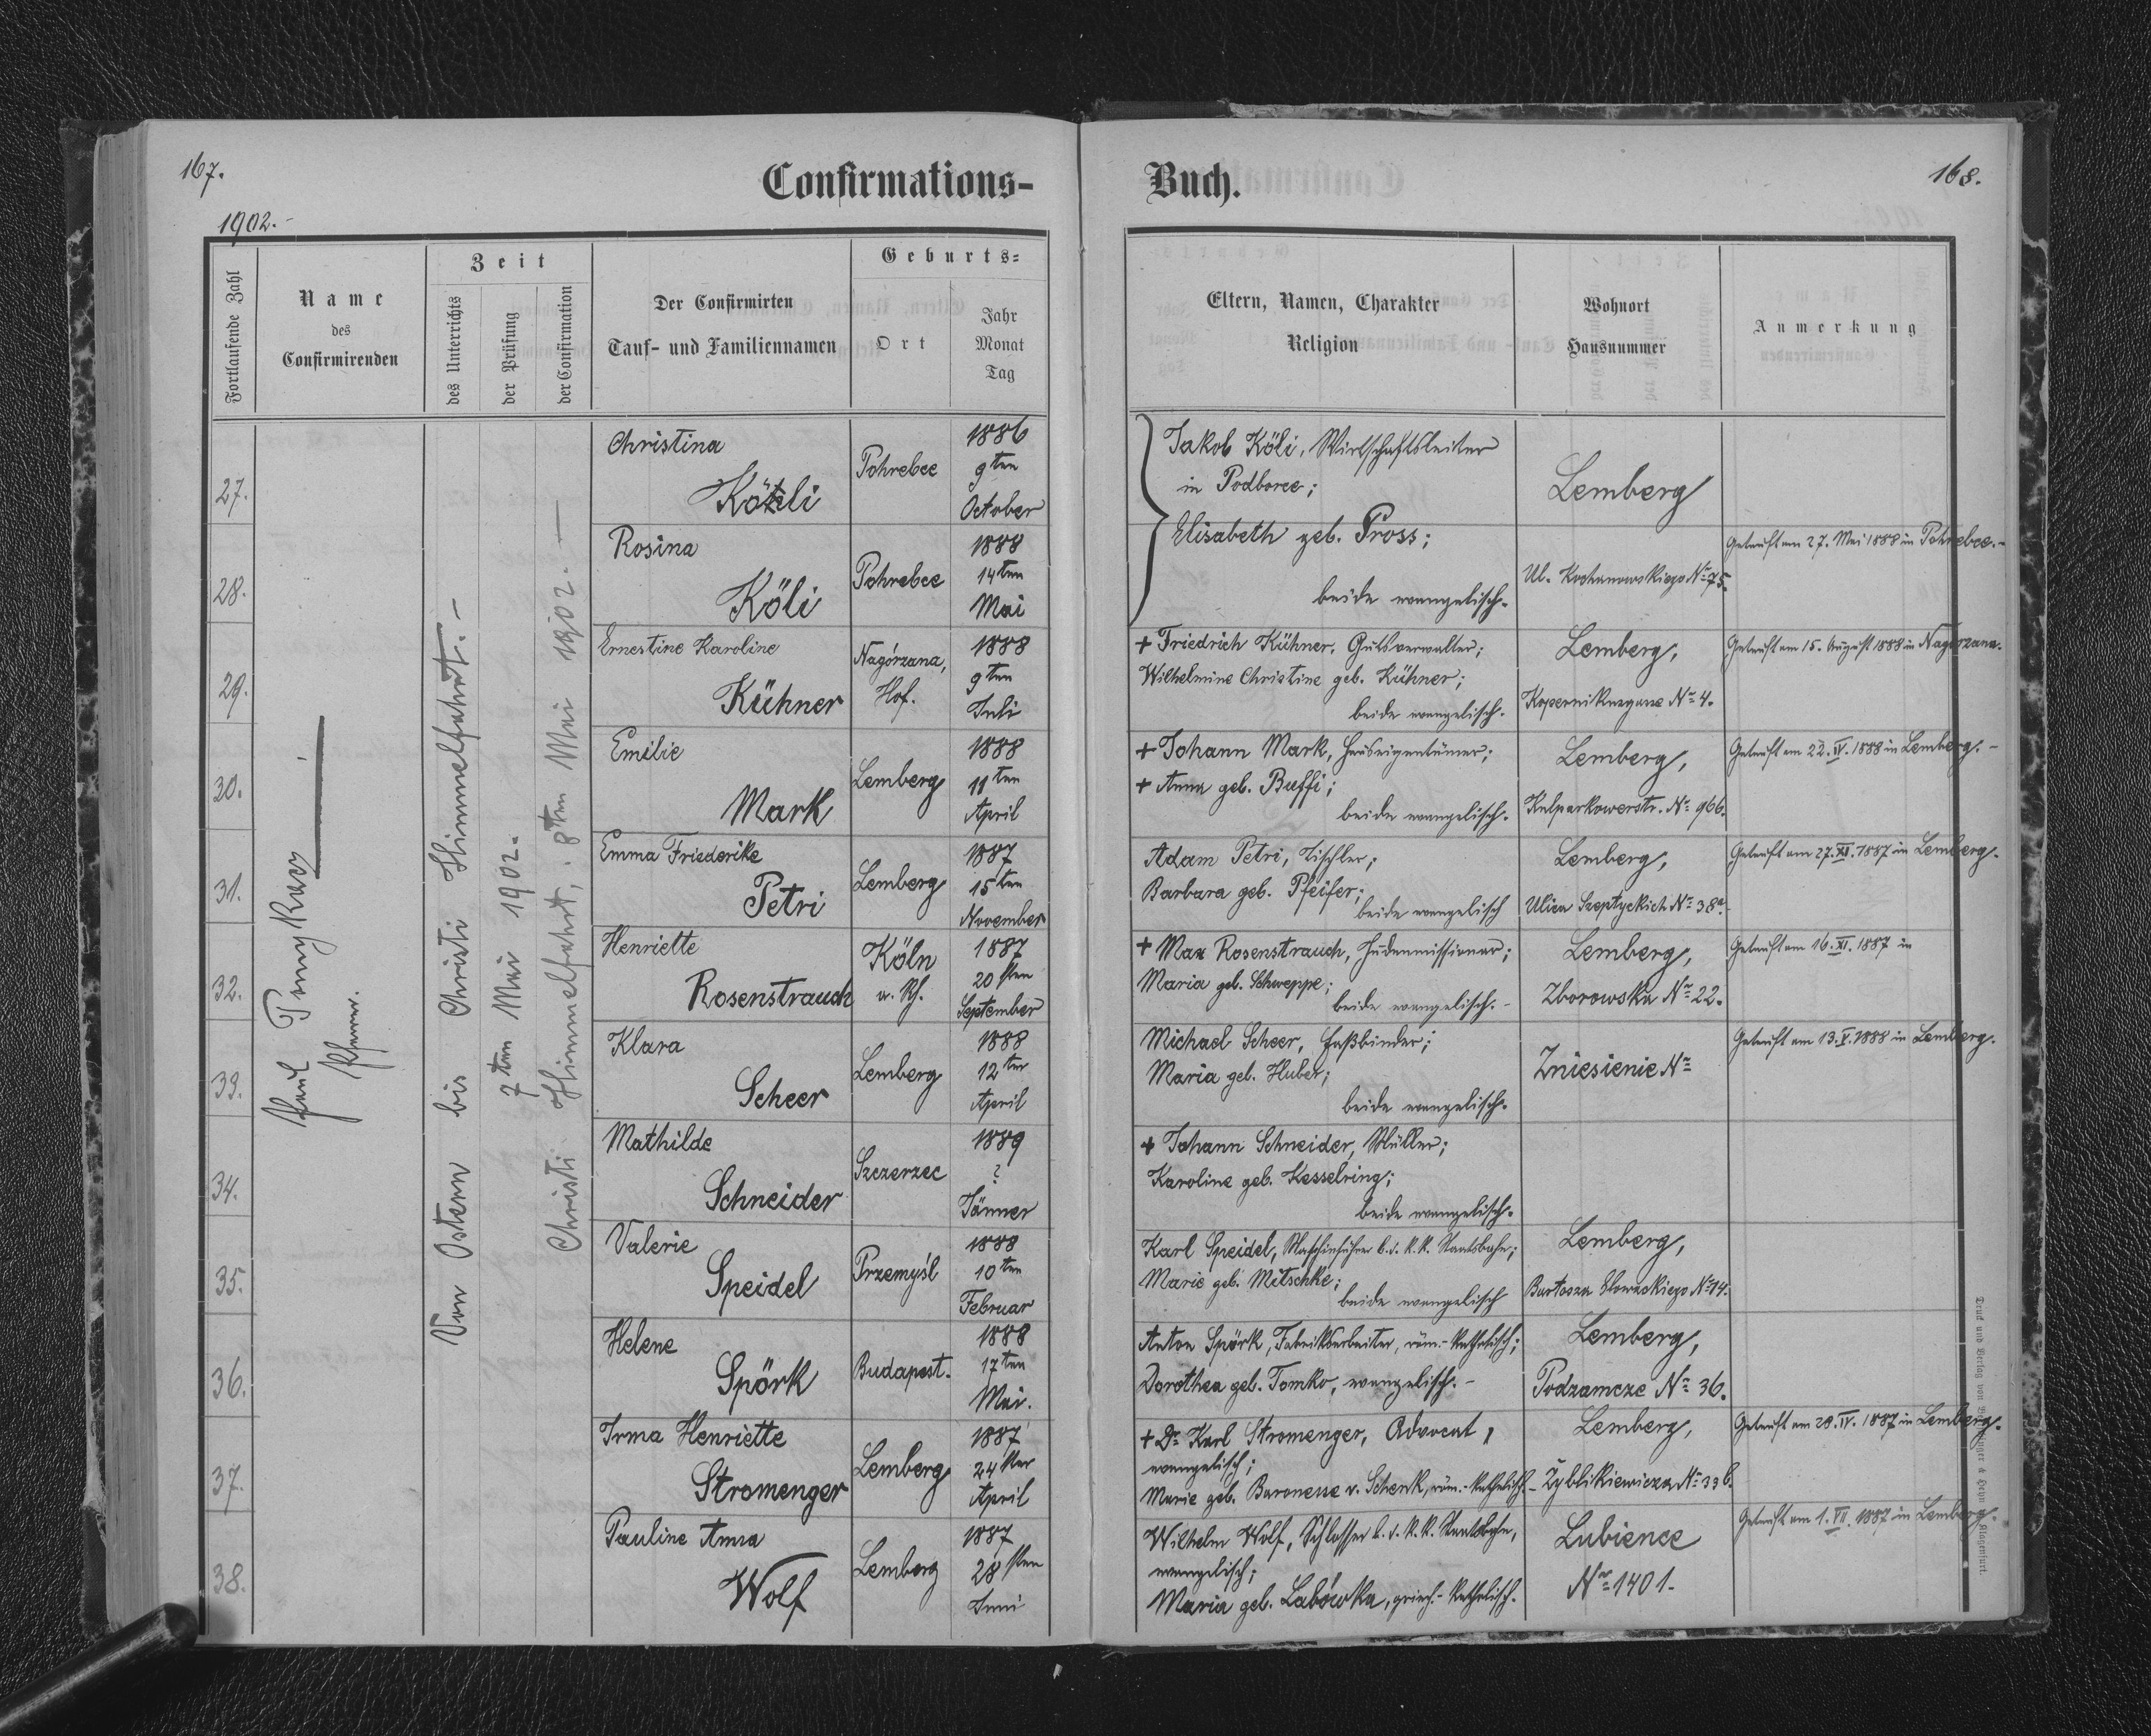 167.
Confirmations-
Buch.
168.
1902.-
Fortlaufende Zahl
Name
des
Confirmirenden
Zeit
des Unterrichts
der Prüfung
der Confirmation
Der Confirmirten
Tauf- und Familiennamen
Geburts-
Ort
Jahr
Monat
Tag
Eltern, Namen, Charakter
Religion
Wohnort
Hausnummer
Anmerkung
Pfarrer.
Von Ostern bis Christi Himmelfahrt.-
7ten Mai 1902.
Christi Himmelfahrt, 8ten Mai 1902.-
27.
Christina
Köli
Pohrebce
1886
9ten
October
Jakob Köli, Wirtschaftsleiter
in Podborce;
Elisabeth geb. Pross;
beide evangelisch.
Lemberg
28.
Rosina
Köli
Pohrebce
1888
14ten
Mai
Ul. Kochanowskiego Nr 75.
Getauft am 27. Mai 1888 in Pohrebce.-
29.
Ernestine Karoline
Kühner
Nagórzana,
Hof.
1888
9ten
Juli
+ Friedrich Kühner, Gutsverwalter;
Wilhelmine Christine geb. Kühner;
beide evangelisch.
Lemberg,
Kopernikusgasse Nr 4.
Getauft am 15. August 1888 in Nagórzana.
30.
Emilie
Mark
Lemberg
1888
11ten
April
+ Johann Mark, Hauseigentümer;
+ Anna geb. Buffi;
beide evangelisch.
Lemberg,
Kulparkowerstr. Nr 966.
Getauft am 22. IV. 1888 in Lemberg.-
31.
Emma Friederike
Petri
Lemberg
1887
15ten
November
Adam Petri, Tischler;
Barbara geb. Pfeifer;
beide evangelisch
Lemberg,
Ulica Szeptyckich Nr 38a.
Getauft am 27. XI. 1887 in Lemberg.
32.
Henriette
Rosenstrauch
Köln
a. Rh.
1887
20sten
September
+ Max Rosenstrauch, Judenmissionar;
Maria geb. Schweppe;
beide evangelisch.-
Lemberg,
Zborowska Nr 22.
Getauft am 16. XI. 1887 in
33.
Klara
Scheer
Lemberg
1888
12ten
April
Michael Scheer, Faßbinder;
Maria geb. Huber;
beide evangelisch.
Zniesienie Nr
Getauft am 13. V. 1888 in Lemberg.
34.
Mathilde
Schneider
Szczerzec
1889
?
Jänner
+ Johann Schneider, Müller;
Karoline geb. Kesselring;
beide evangelisch.
35.
Valerie
Speidel
Przemyśl
1888
10ten
Februar
Karl Speidel, Maschinführer b. d. k. k. Staatsbahn;
Marie geb. Mitschke;
beide evangelisch
Lemberg,
Bartosza Głowackiego Nr 14.
36.
Helene
Spörk
Budapest.
1888
17ten
Mai.
Anton Spörk, Fabriksarbeiter, röm.-katholisch;
Dorothea geb. Tomko, evangelisch.-
Lemberg,
Podzamcze Nr 36.
37.
Irma Henriette
Stromenger
Lemberg
1887
24sten
April
+ Dr Karl Stromenger, Advocat,
evangelisch;
Marie geb. Baronesse v. Schenk, röm.-katholisch.-
Lemberg,
Zyblikiewicza Nr 33b.
Getauft am 28. IV. 1887 in Lemberg.
38.
Pauline Anna
Wolf
Lemberg
1887
28sten
Juni
Wilhelm Wolf, Schlosser b. d. k. k. Staatsbahn,
evangelisch;
Maria geb. Labówka, griech.-katholisch.
Lubience
Nr 1401.
Getauft am 1. VII. 1887 in Lemberg.
Druck und Verlag von & Heyn Klagenfurt.